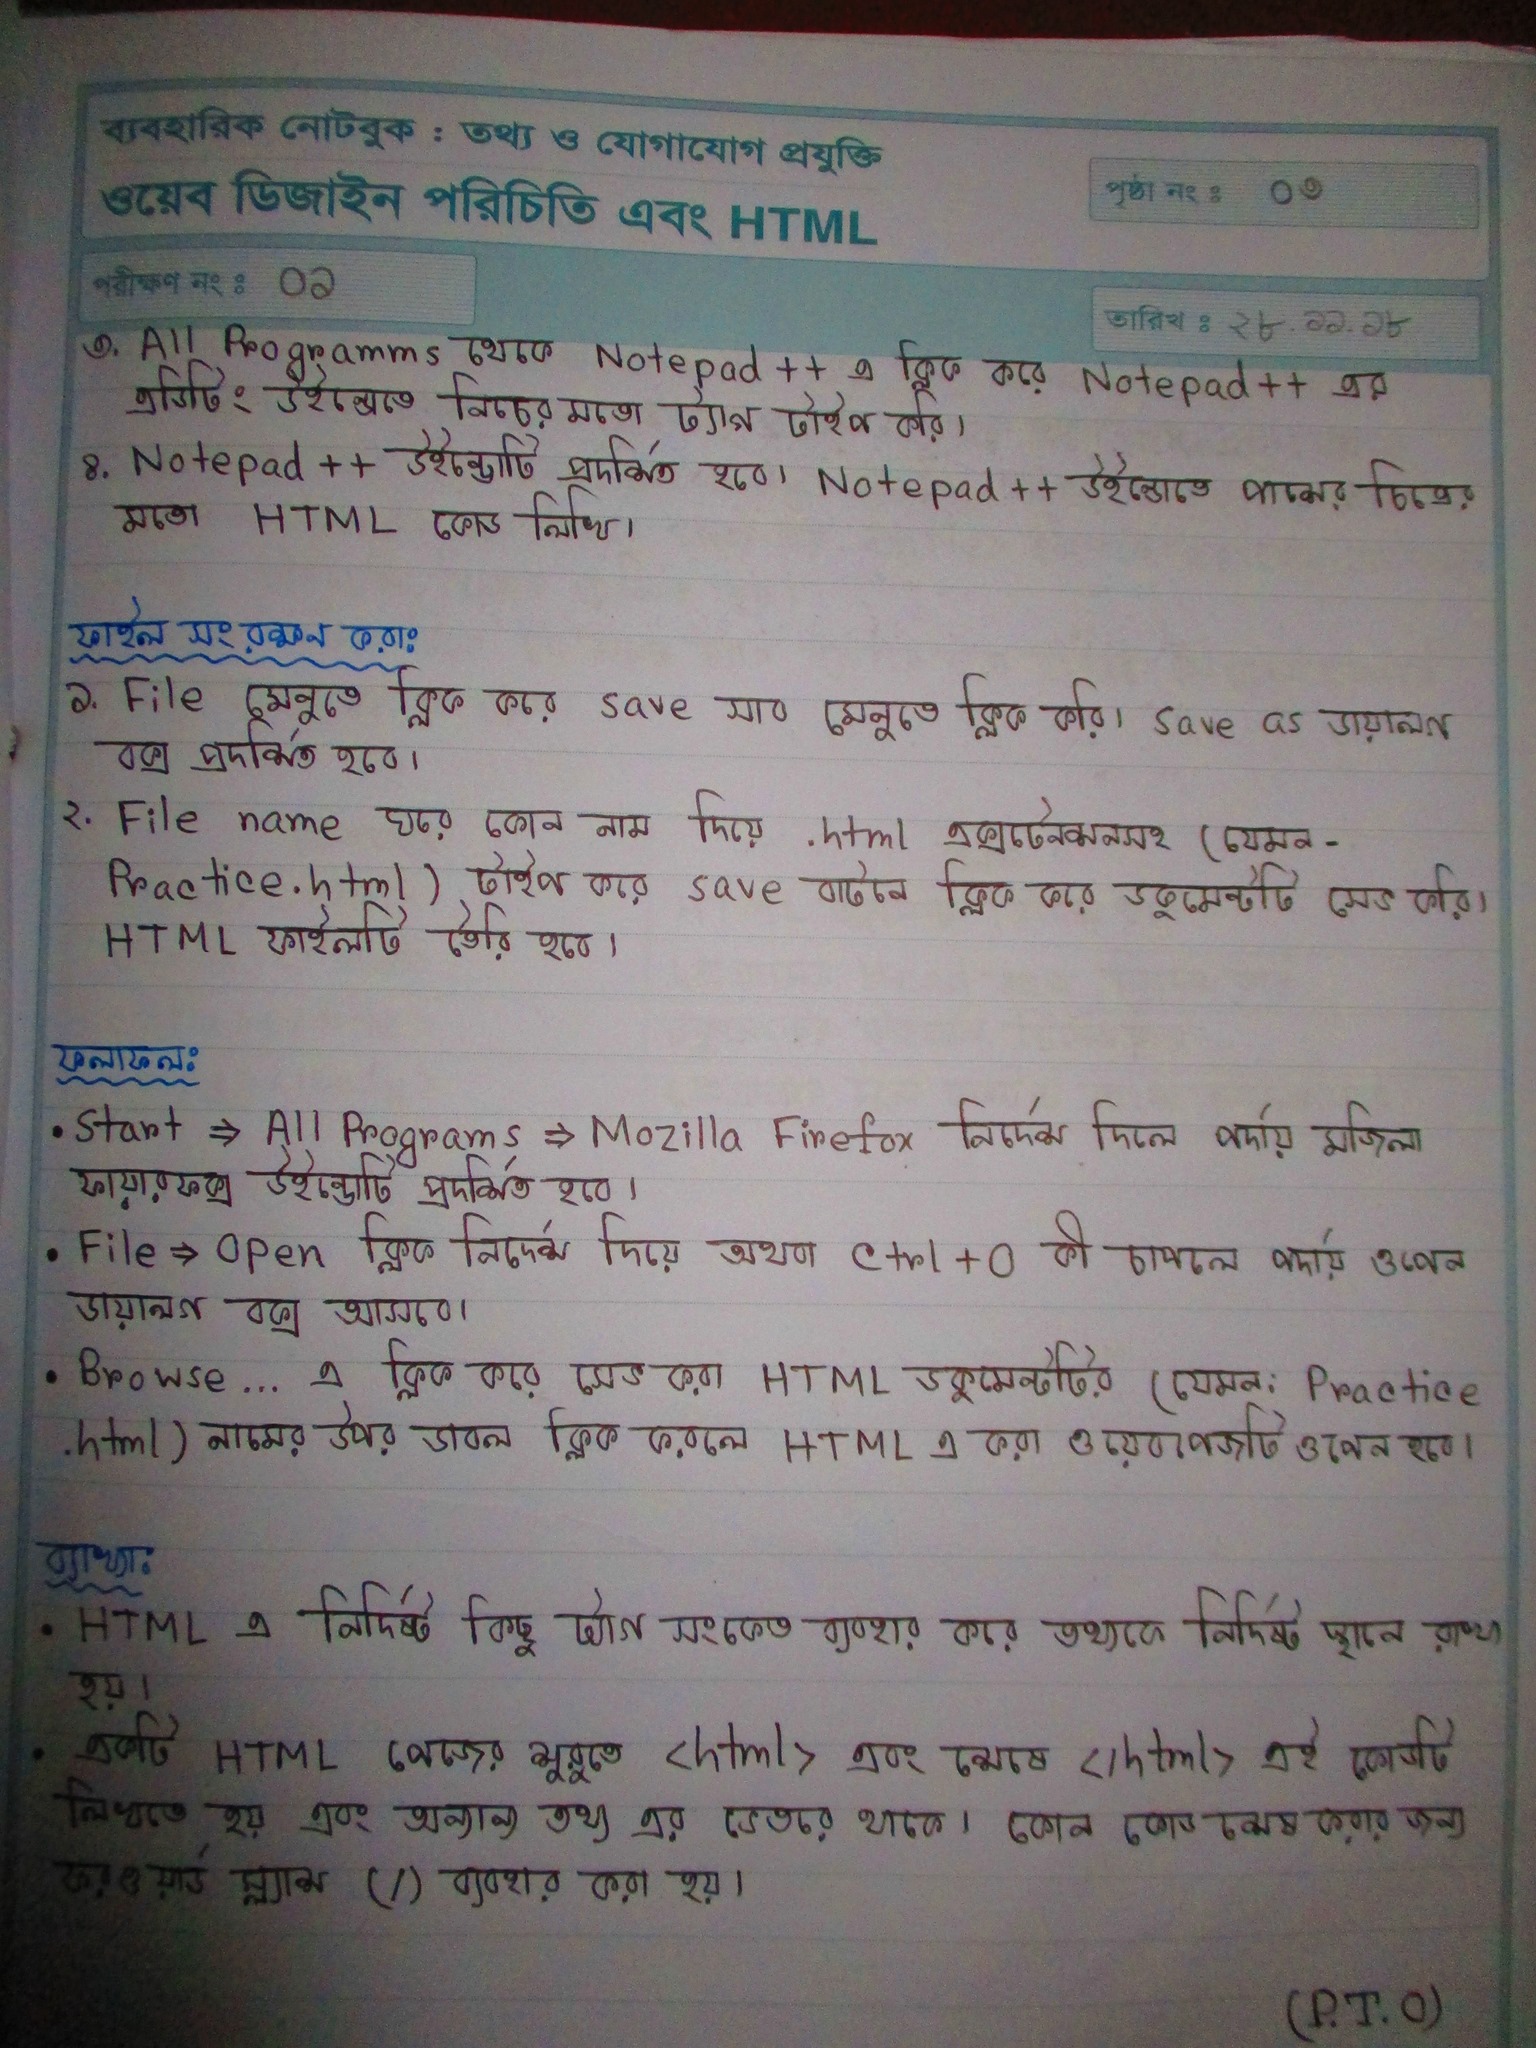 ব্যবহারিক নোটবুক : তথ্য ও যোগাযোগ প্রযুক্তি
ওয়েব ডিজাইন পরিচিতি এবং HTML
পৃষ্ঠা নং : ০৩
পরীক্ষণ নং : ০১
তারিখ : ২৮.১১.১৮
৩. All Programms থেকে Notepad ++ এ ক্লিক করে Notepad++ এর
এডিটিং উইন্ডোতে নিচের মতো ট্যাগ টাইপ করি।
৪. Notepad ++ উইন্ডোটি প্রদর্শিত হবে। Notepad ++ উইন্ডোতে পাশের চিত্রের
মতো HTML কোড লিখি।
ফাইল সংরক্ষন করাঃ
১. File মেনুতে ক্লিক করে save সাব মেনুতে ক্লিক করি। save as ডায়ালগ
বক্স প্রদর্শিত হবে।
২. File name ঘরে কোন নাম দিয়ে .html এক্সটেনশনসহ (যেমন-
Practice.html) টাইপ করে save বাটনে ক্লিক করে ডকুমেন্টটি সেভ করি।
HTML ফাইলটি তৈরি হবে।
ফলাফলঃ
• Start ⇒ All Programs ⇒ Mozilla Firefox নির্দেশ দিলে পর্দায় মজিলা
ফায়ারফক্স উইন্ডোটি প্রদর্শিত হবে।
• File ⇒ Open ক্লিক নির্দেশ দিয়ে অথবা Ctrl + O কী চাপলে পর্দায় ওপেন
ডায়ালগ বক্স আসবে।
• Browse... এ ক্লিক করে সেভ করা HTML ডকুমেন্টটির (যেমন: Practice
.html) নামের উপর ডাবল ক্লিক করলে HTML এ করা ওয়েবপেজটি ওপেন হবে।
ব্যাখ্যাঃ
• HTML এ নির্দিষ্ট কিছু ট্যাগ সংকেত ব্যবহার করে তথ্যকে নির্দিষ্ট স্থানে রাখা
হয়।
• একটি HTML পেজের শুরুতে <html> এবং শেষে </html> এই কোডটি
লিখতে হয় এবং অন্যান্য তথ্য এর ভেতরে থাকে। কোন কোড শেষ করার জন্য
ফরওয়ার্ড স্ল্যাশ (/) ব্যবহার করা হয়।
(P.T.O)